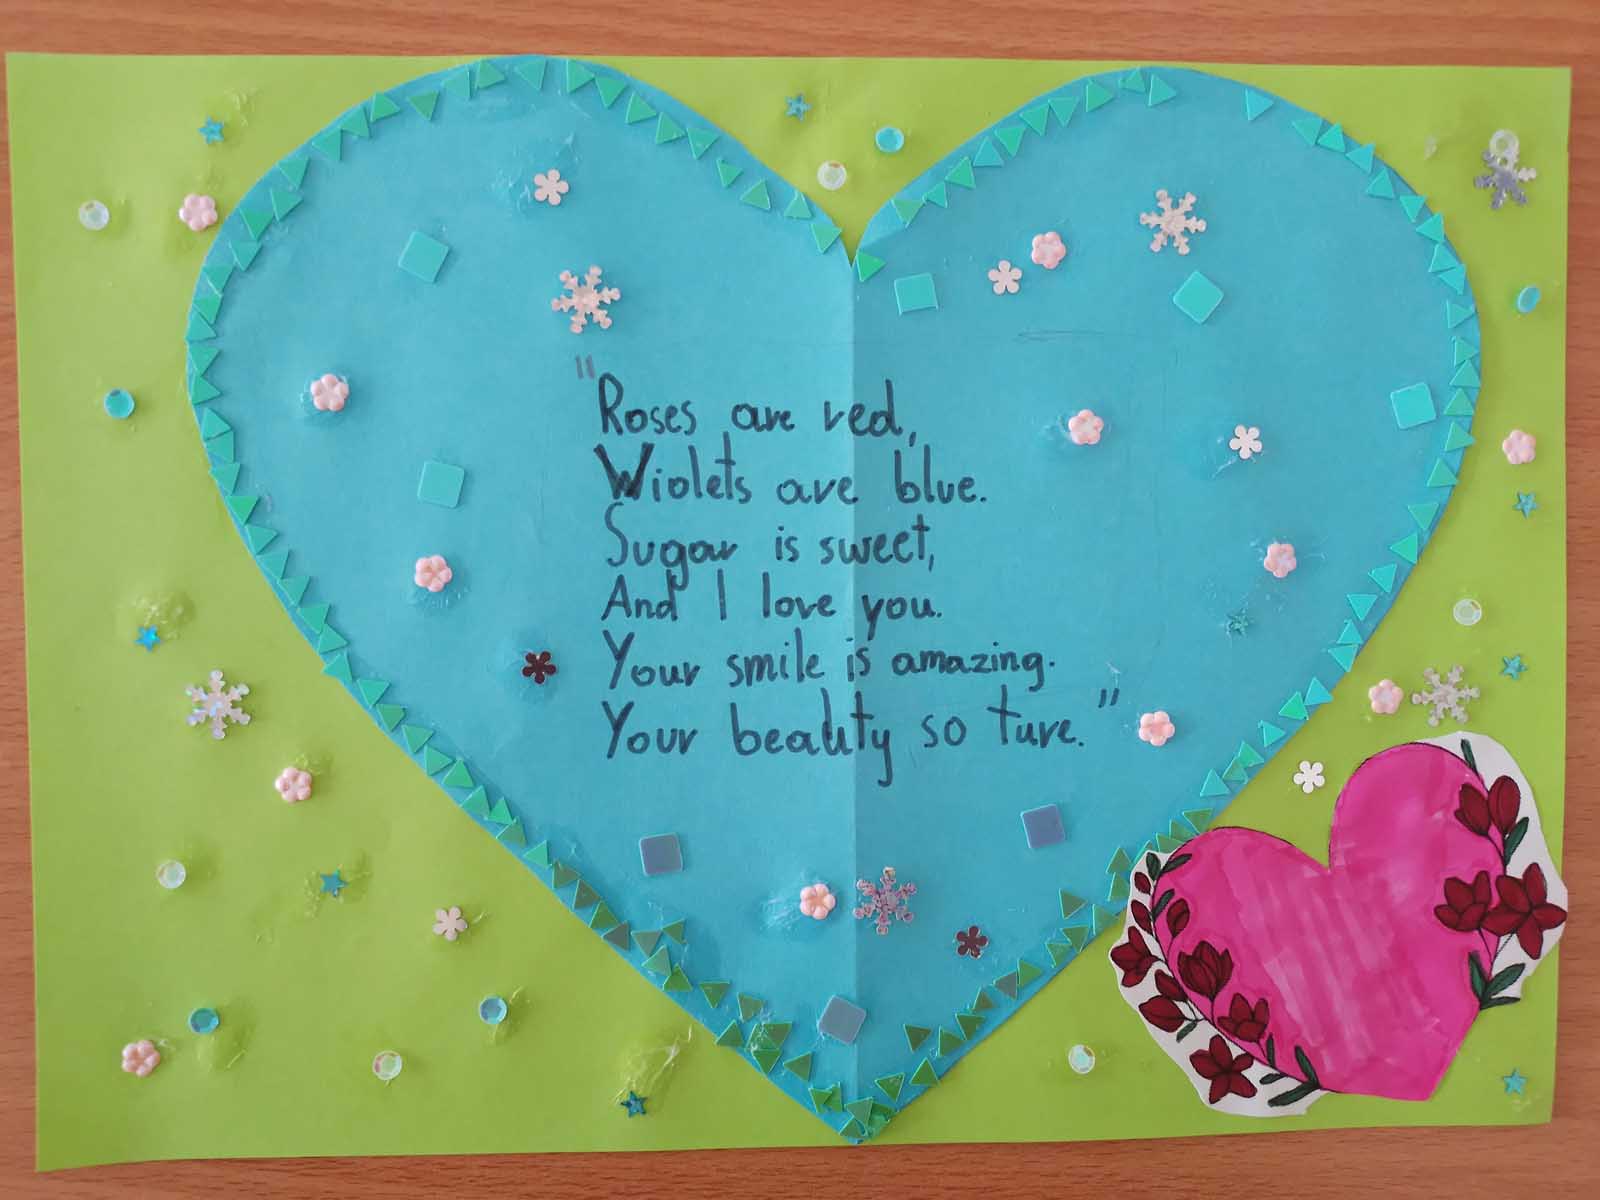 "Roses are red,
Wiolets are blue.
Sugar is sweet,
And I love you.
Your smile is amazing.
Your beauty so ture."